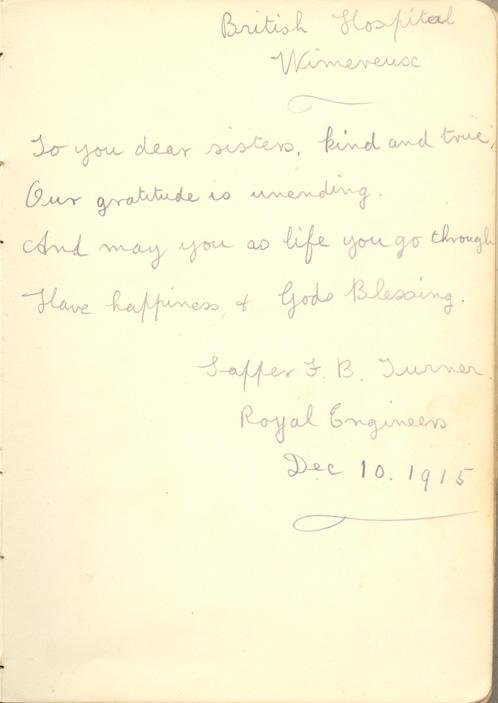 British Hospital
Wimereux
To you dear sisters, kind and true,
Our gratitude is unending.
And may you as life you go through
Have happiness, & Gods Blessing.
Sapper F. B. Turner
Royal Engineers
Dec 10. 1915